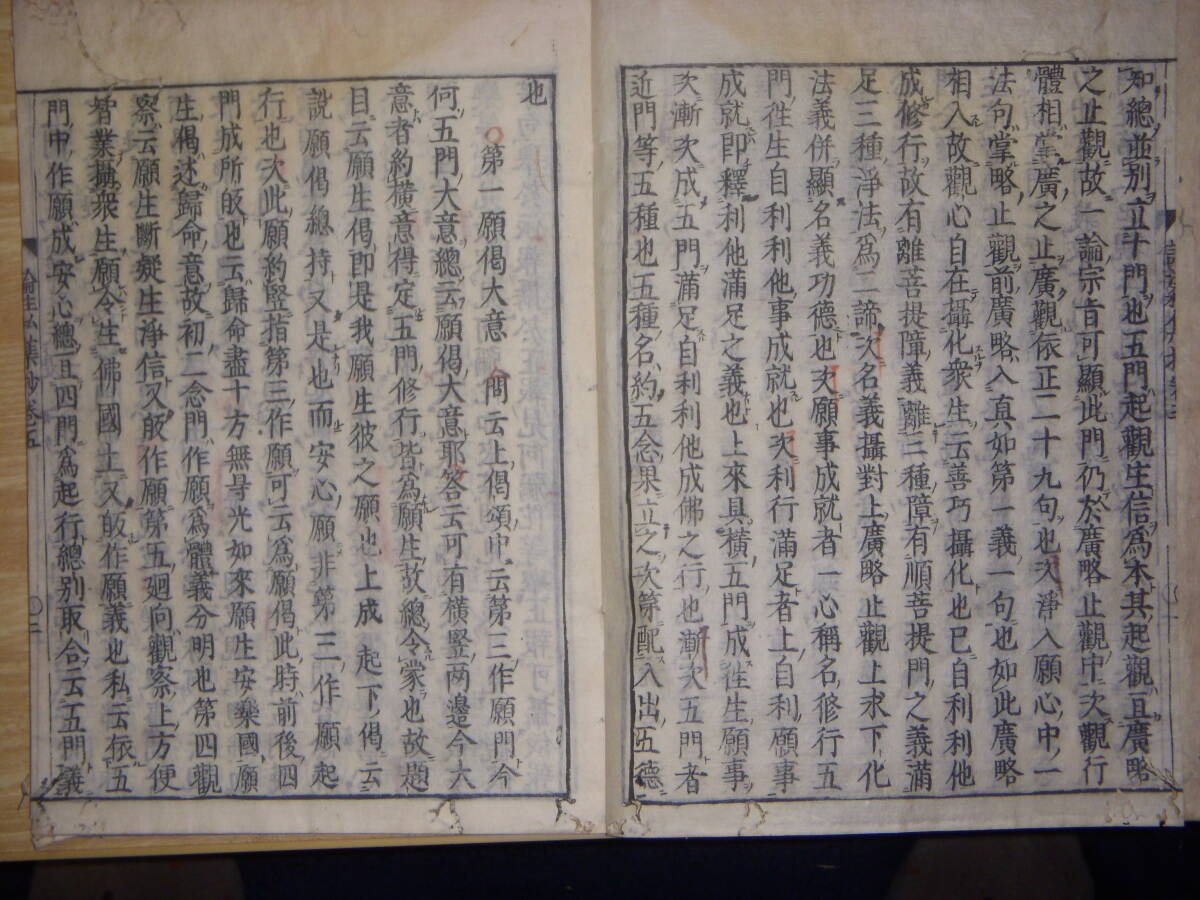 知總並別立十門也五門起觀生信爲本其起觀且廣略
之止觀故一論宗旨可顯此門仍於廣略止觀中次觀行
體相掌廣之止廣觀依正二十九句也次淨入願心中一
法句掌略止觀前廣略入真如第一義一句也如此廣略
相入故觀心自在攝化衆生云善巧攝化也已自利利他
成修行故有離菩提障義離三種障有順菩提門之義滿
足三種淨法爲二諦次名義攝對上廣略止觀上求下化
法義併顯名義功德也次願事成就者一心稱名修行五
門徃生自利利他事成就也次利行滿足者上自利願事
成就即釋利他滿足之義也上來具橫五門成徃生願事
次漸次成五門滿足自利利他成佛之行也漸次五門者
近門等五種也五種名約五念果立之次第配入出五德
也
第一願偈大意 問云上偈頌中云第三作願門今
何五門大意總云願偈大意耶答云可有橫竪兩邊今大
意者約橫意得定五門修行皆爲願生故總令蒙也故題
目云願生偈即是我願生彼之願也上成起下偈云
說願偈總持又是也而安心願非第三作願起
行也次此願約竪指第三作願可云爲願偈此時前後四
門成所皈也云歸命盡十方無㝵光如來願生安樂國願
生偈述歸命意故初二念門作願爲體義分明也第四觀
察云願生斷疑生淨信又皈作願第五廻向觀察上方便
智業攝衆生願令生佛國土又皈作願義也私云依五
門中作願成安心總且四門爲起行總別取合云五門義